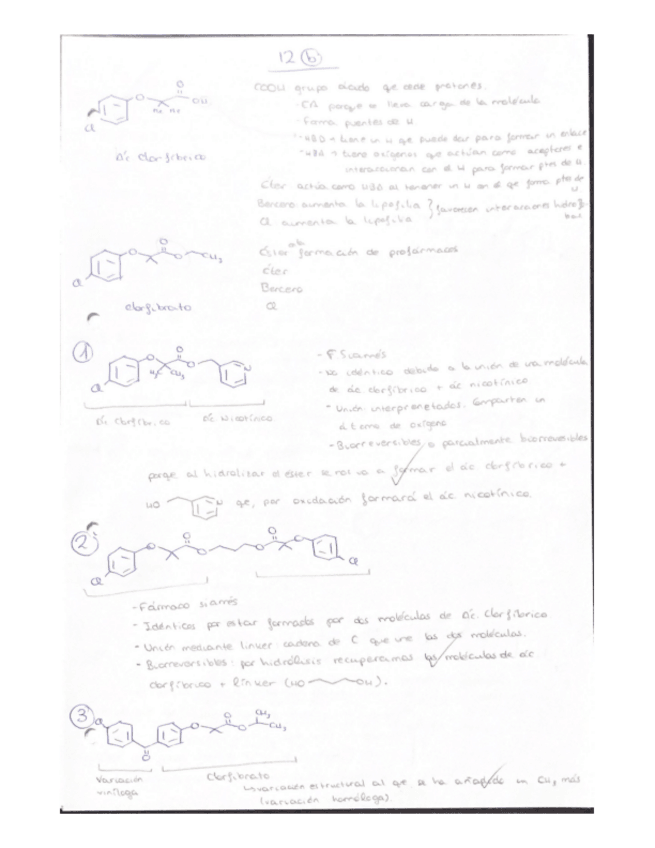 12 (b)
COOH grupo ácido qe cede protones.
- CA porque se lleva carga de la molécula
- Forma puentes de H
- HBD → tiene un H que puede dar para formar un enlace
- HBA → tiene oxígenos que actúan como aceptores e
interaccionan con el H para formar ptes de H.
Éter actúa como HBA al tener un H en el qe forma ptes de H
Benceno aumenta la lipofilia } favorecen interacciones hidrofó-
Cl aumenta la lipofilia bas
Cl
O
O
OH
Ác Clorfíbrico
Éster formación de profármacos
Éter
Benceno
Cl
Cl
O
O
O
CH3
clorfibrato
1
Cl
O
O
O
H3C
CH3
N
Ác. Clorfíbrico
Ác. Nicotínico
- F Siamés
- No idéntico debido a la unión de una molécula
de ác. clorfíbrico + ác nicotínico
- Unión interpenetrados. Comparten un
átomo de oxígeno
- Biorreversibles o parcialmente biorreversibles
porqe al hidrolizar el éster se nos va a formar el ác clorfíbrico +
HO N qe, por oxidación formará el ác nicotínico.
2
Cl
O
O
O
O
O
O
Cl
- Fármaco siamés
- Idénticos por estar formados por dos moléculas de ác. Clorfíbrico
- Unión mediante linker: cadena de C que une las dos moléculas.
- Biorreversibles: por hidrólisis recuperamos las moléculas de ác
clorfíbrico + linker (HO OH).
3
Cl
O
O
O
O
CH3
CH3
Variación
viníloga
Clorfibrato
↳ variación estructural al que se ha añadido un CH2 más
(variación homóloga)